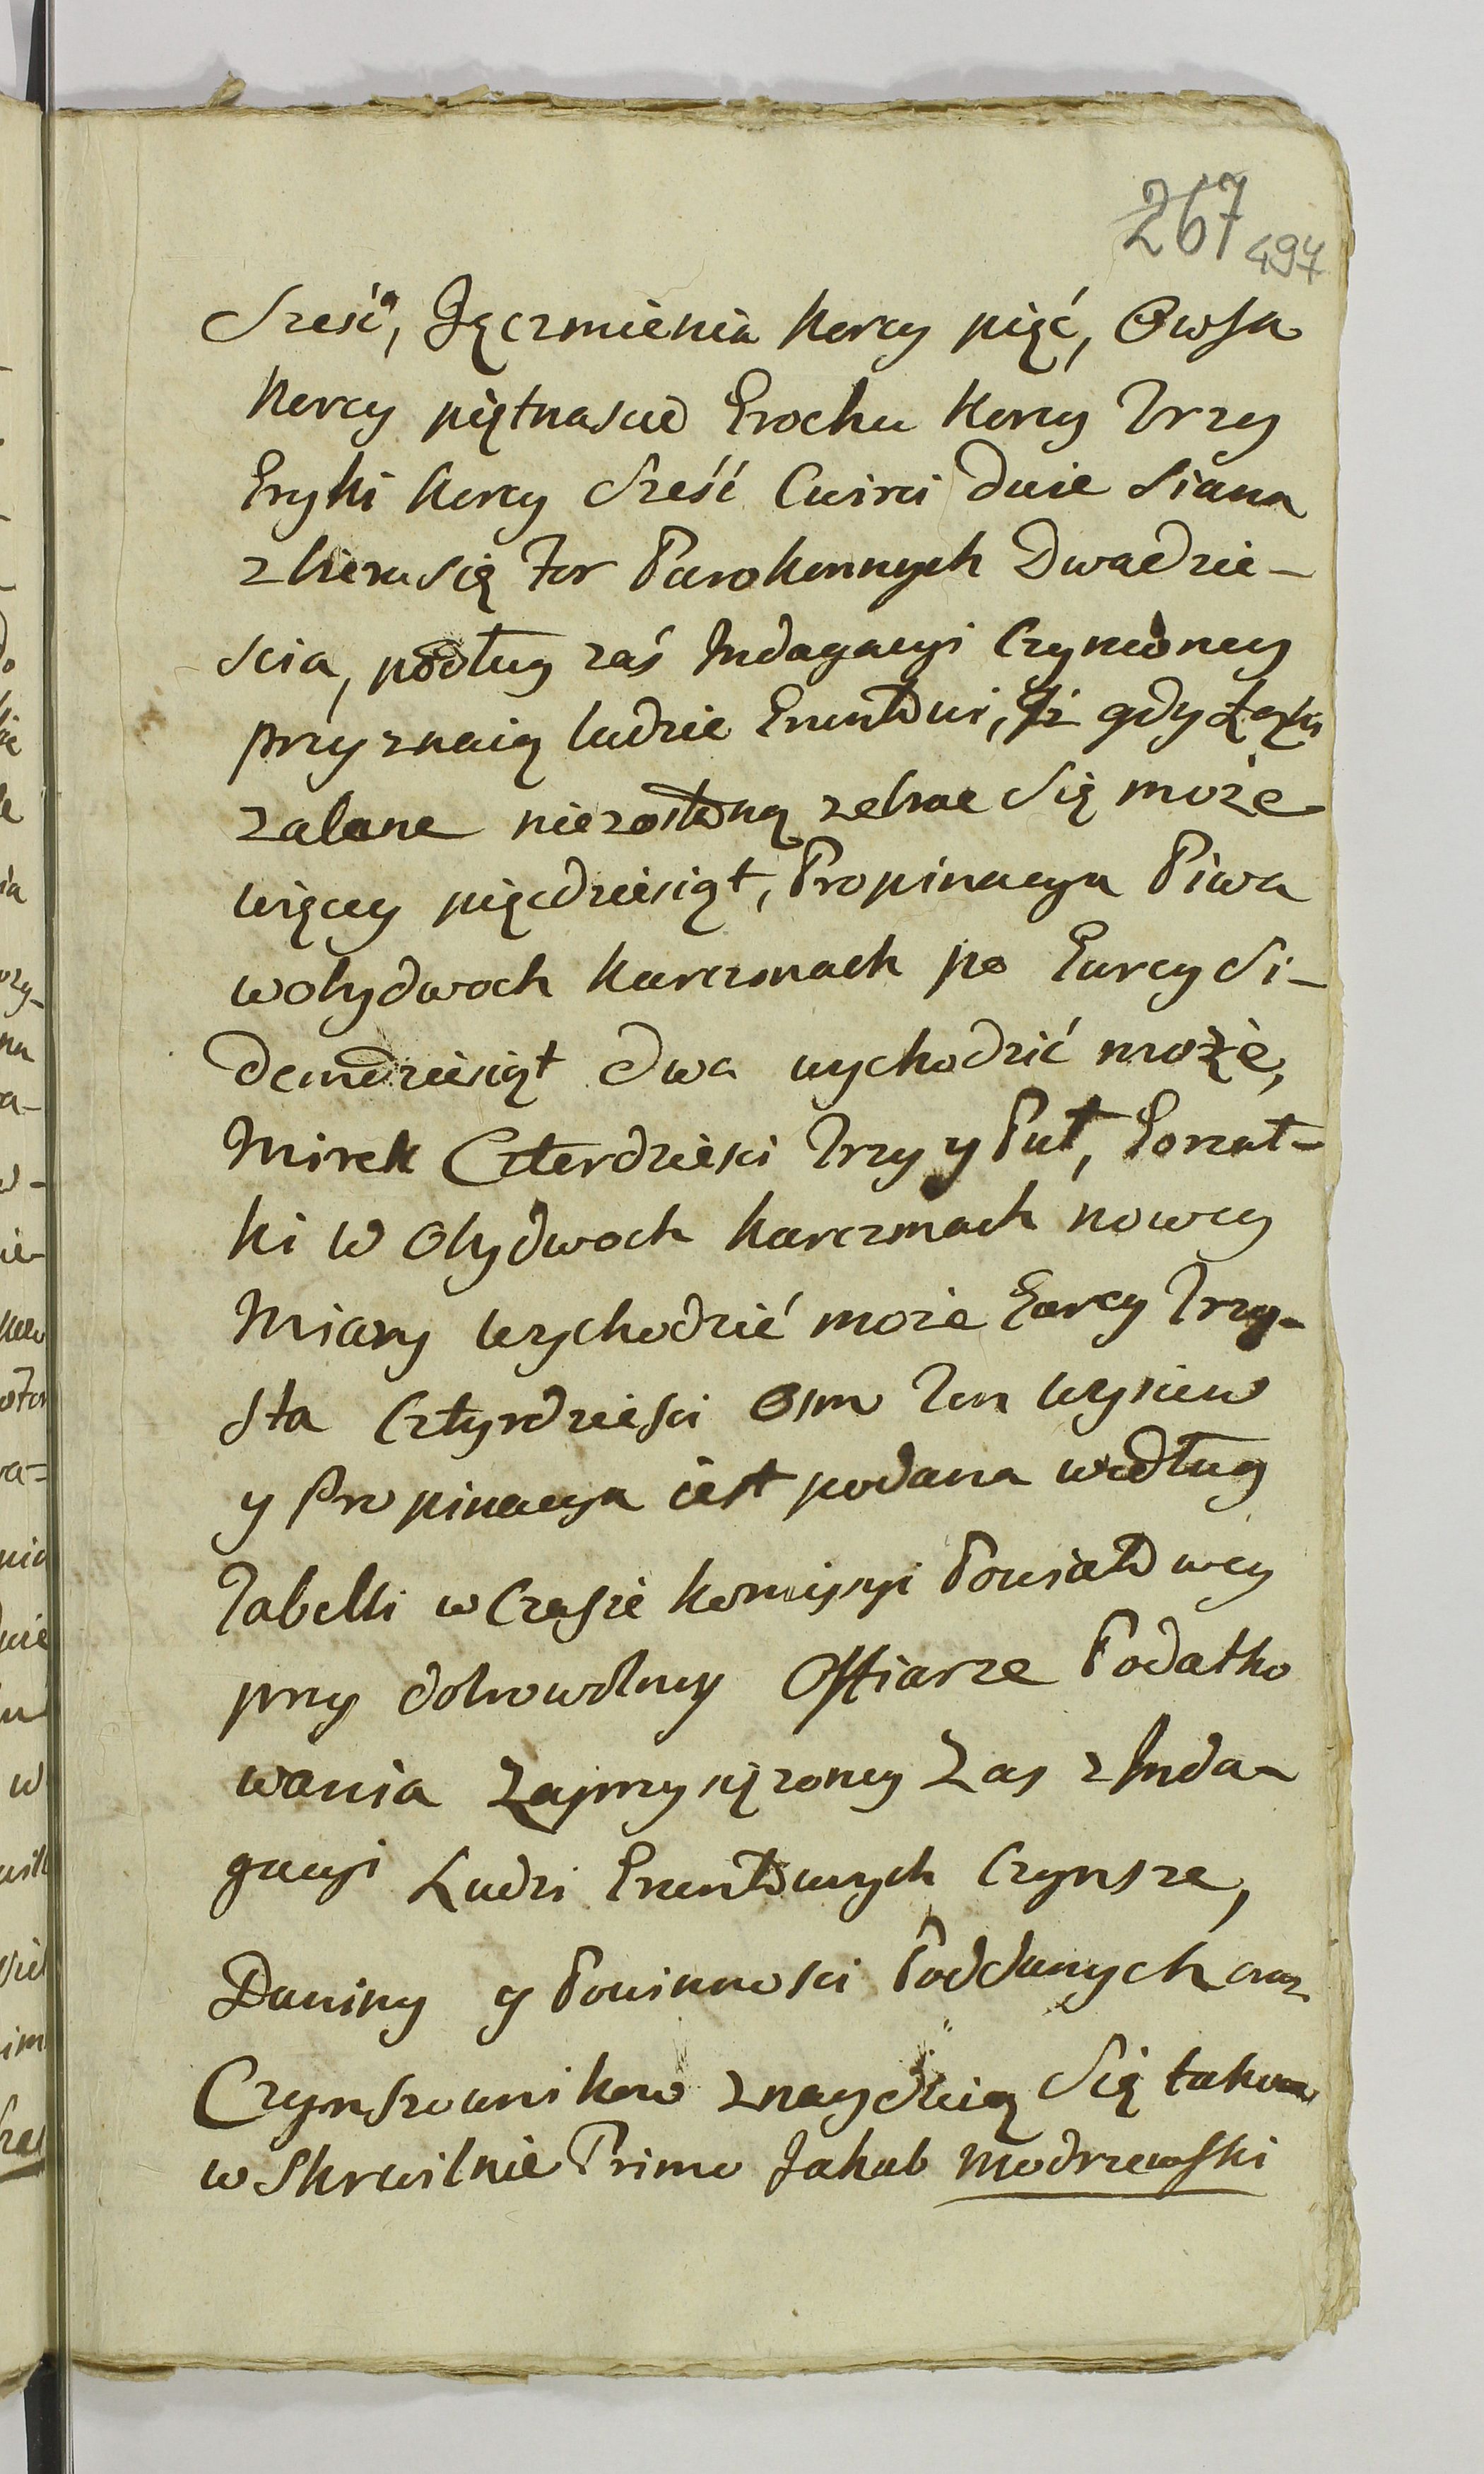 267
497
Sześć, Jęczmienia korcy pięć, Owsa
korcy piętnascie Grochu korcy Trzy
Gryki korcy Sześć Cwirci dwie Siana
zbiera się For Parokonnych Dwadzie-
scia, podług zaś Indagacyi Czynioney
przyznaią ludzie Gruntowi, Iż gdy Łąki
zalane niezostaną zebrac Się może
więcey pięcdziesiąt, Propinacya Piwa
wobydwoch karczmach po Garcy Si-
demdziesiąt dwa wychodzić może,
Mirek Czterdziesci Trzy y Puł, Gorzał-
ki w Obydwoch karczmach nowey
Miary wychodzić może Garcy Trzy-
sta Cztyrdziesci Osm Ten wysiew
y Propinacya iest podana według
Tabelli w Czasie kommissyi Powiatowey
przy dobrowolney Offiarze Podatko
wania Zaprzysiężoney Zas z Inda-
gacyi Ludzi Gruntowych Czynsze,
Daniny y Powinnosci Poddanych oraz
Czynszownikow znayduią Się takowe
w Skrwilnie Primo Jakub Modrzewski